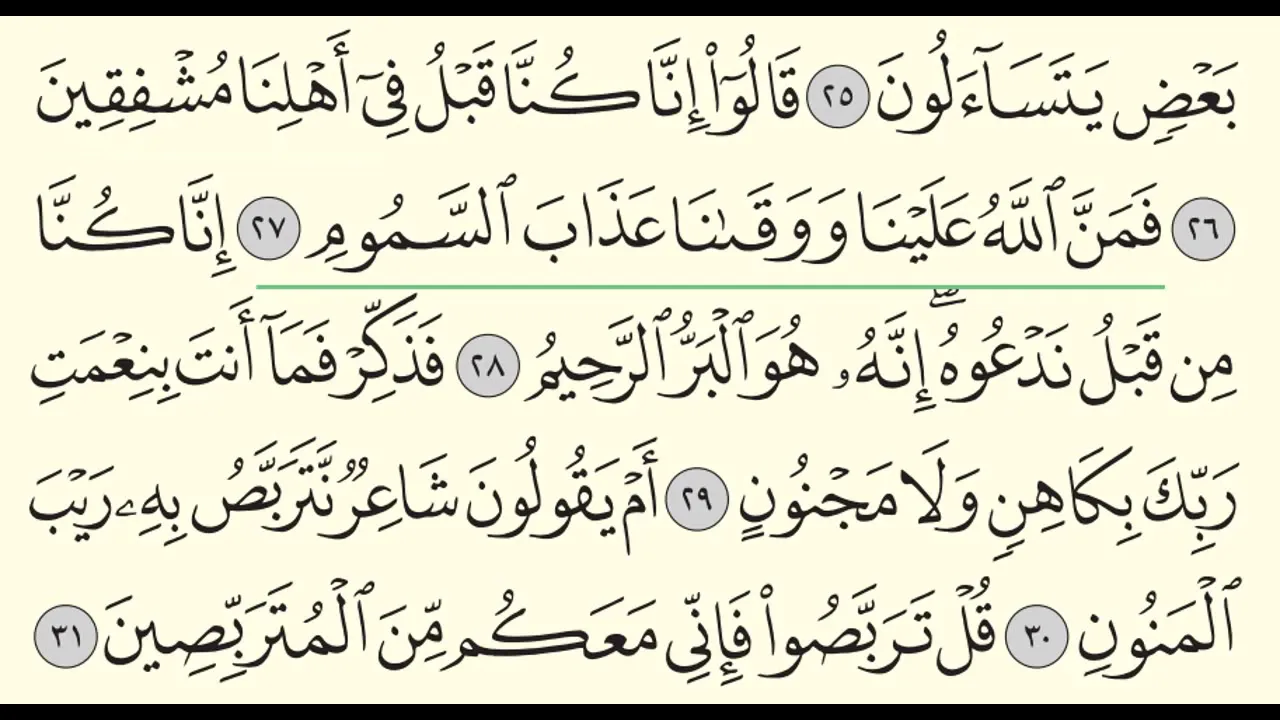 بَعۡضٖ يَتَسَآءَلُونَ ٢٥ قَالُوٓاْ إِنَّا كُنَّا قَبۡلُ فِيٓ أَهۡلِنَا مُشۡفِقِينَ
٢٦ فَمَنَّ ٱللَّهُ عَلَيۡنَا وَوَقَىٰنَا عَذَابَ ٱلسَّمُومِ ٢٧ إِنَّا كُنَّا
مِن قَبۡلُ نَدۡعُوهُۖ إِنَّهُۥ هُوَ ٱلۡبَرُّ ٱلرَّحِيمُ ٢٨ فَذَكِّرۡ فَمَآ أَنتَ بِنِعۡمَتِ
رَبِّكَ بِكَاهِنٖ وَلَا مَجۡنُونٍ ٢٩ أَمۡ يَقُولُونَ شَاعِرٞ نَّتَرَبَّصُ بِهِۦ رَيۡبَ
ٱلۡمَنُونِ ٣٠ قُلۡ تَرَبَّصُواْ فَإِنِّي مَعَكُم مِّنَ ٱلۡمُتَرَبِّصِينَ ٣١